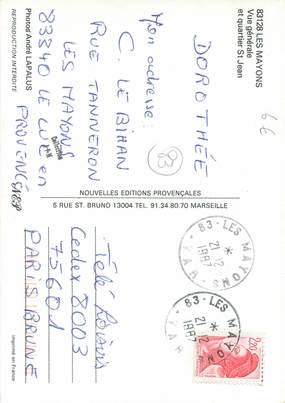 83128 LES MAYONS
Vue générale
et quartier St Jean
DOROTHÉE
Mon adresse:
C. LE BIHAN
RUE TANNERON
LES MAYONS
83340 LE LUC EN
PROVENCE
83
6€
Photos André LAPALUS
REPRODUCTION INTERDITE
NOUVELLES EDITIONS PROVENÇALES
5 RUE ST. BRUNO 13004 TEL. 91.34.80.70 MARSEILLE
Cedex 8003
75601
PARIS BRUNE
Imprimé en France
83 - LES MAYONS
21-12
1987
VAR
83 - LES MAYONS
21-12
1987
VAR
2,20